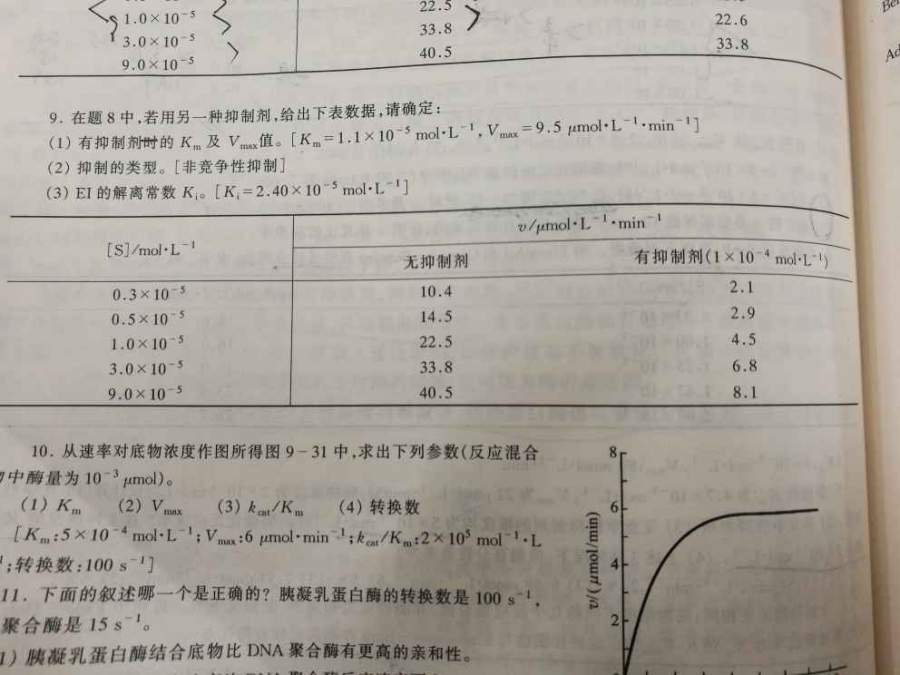 1.0×10⁻⁵
22.5
22.6
3.0×10⁻⁵
33.8
33.8
9.0×10⁻⁵
40.5
9. 在题 8 中,若用另一种抑制剂,给出下表数据,请确定:
(1) 有抑制剂时的 Km 及 Vmax值。[Km=1.1×10⁻⁵ mol·L⁻¹, Vmax=9.5 μmol·L⁻¹·min⁻¹]
(2) 抑制的类型。[非竞争性抑制]
(3) EI 的解离常数 Ki。[Ki=2.40×10⁻⁵ mol·L⁻¹]
[S]/mol·L⁻¹
v/μmol·L⁻¹·min⁻¹
无抑制剂 有抑制剂(1×10⁻⁴ mol·L⁻¹)
0.3×10⁻⁵ 10.4 2.1
0.5×10⁻⁵ 14.5 2.9
1.0×10⁻⁵ 22.5 4.5
3.0×10⁻⁵ 33.8 6.8
9.0×10⁻⁵ 40.5 8.1
10. 从速率对底物浓度作图所得图 9-31 中,求出下列参数(反应混合
中酶量为 10⁻³ μmol)。
(1) Km (2) Vmax (3) kcat/Km (4) 转换数
[Km:5×10⁻⁴ mol·L⁻¹;Vmax:6 μmol·min⁻¹;kcat/Km:2×10⁵ mol⁻¹·L
;转换数:100 s⁻¹]
11. 下面的叙述哪一个是正确的? 胰凝乳蛋白酶的转换数是 100 s⁻¹,
聚合酶是 15 s⁻¹。
1) 胰凝乳蛋白酶结合底物比 DNA 聚合酶有更高的亲和性。
8
6
4
2
v/(μmol/min)